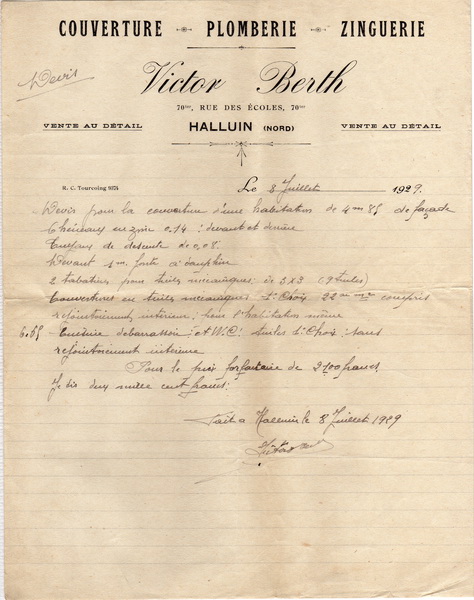 COUVERTURE PLOMBERIE ZINGUERIE
Devis
Victor Berth
70ter, RUE DES ÉCOLES, 70ter
VENTE AU DÉTAIL HALLUIN (NORD) VENTE AU DÉTAIL
R. C. Tourcoing 9274
Le 8 Juillet 1929.
Devis pour la couverture d'une habitation de 4m 85 de façade
Chéneaux en zinc 0.14 : devant et derrière
Tuyaux de descente de 0,08.
Devant 1m fonte à dauphin
2 tabatières pour tuiles mécaniques de 3x3 (9 tuiles)
Couvertures en tuiles mécaniques 1er Choix 22 compris
rejointoiement intérieur; pour l'habitation même
6.55 Cuisine débarrassoir et W.C. tuiles 1er Choix sans
rejointoiement intérieure
Pour le prix forfaitaire de 2100 francs
Je dis deux mille cent francs.
Fait à Halluin le 8 Juillet 1929